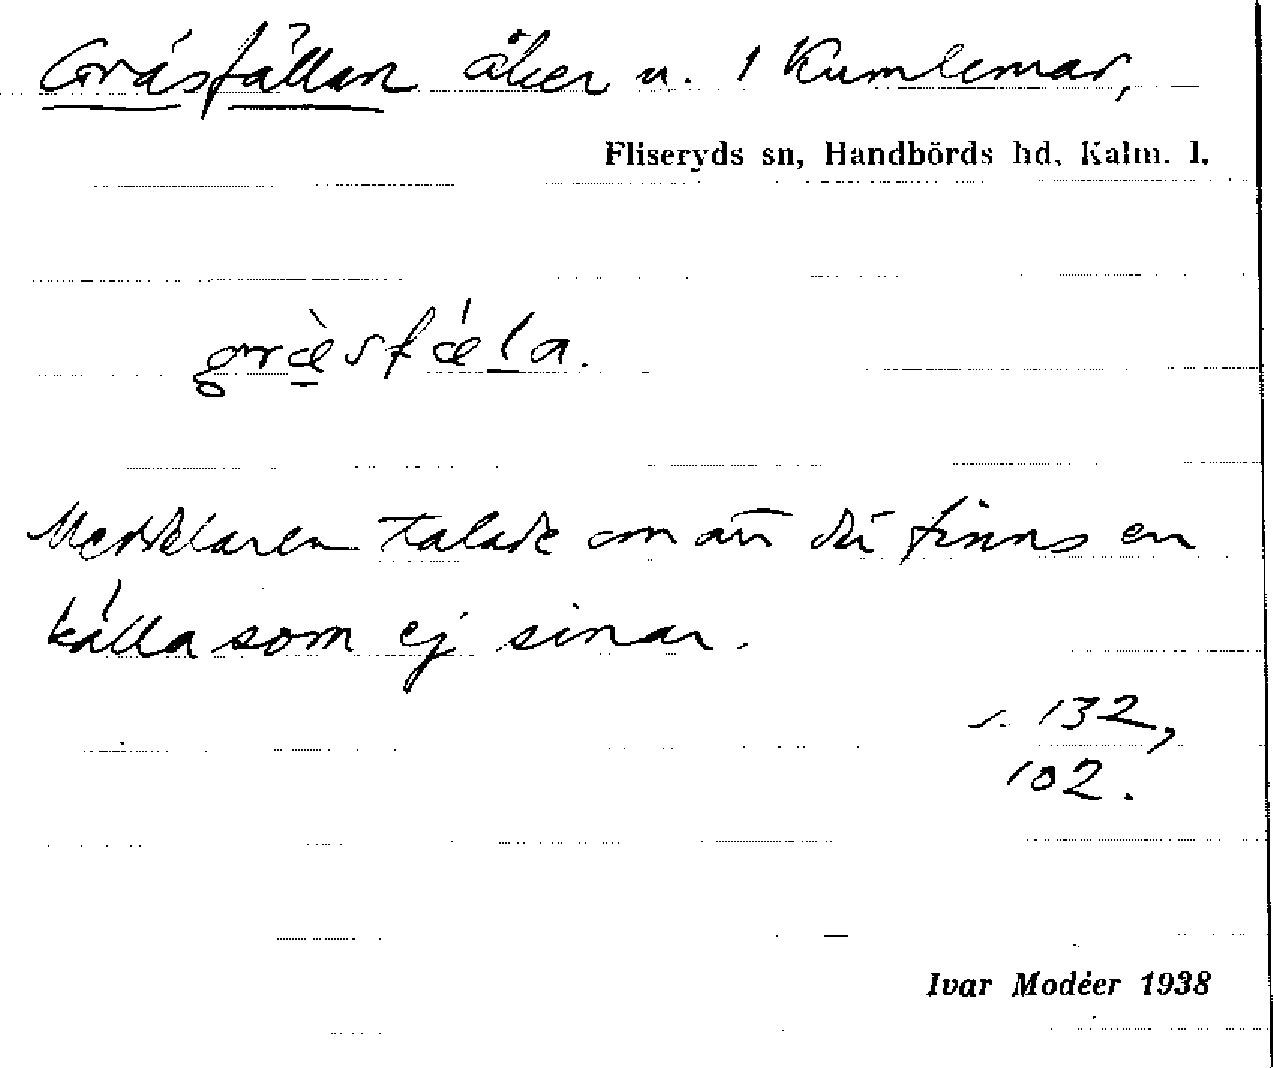 Gräsfällan åker u. 1 Kumlemar,
Fliseryds sn, Handbörds hd, Kalm. l.
græ̀sfǽla.
Meddelaren talade om att där finns en
källa som ej sinar.
s. 132,
102.
Ivar Modéer 1938